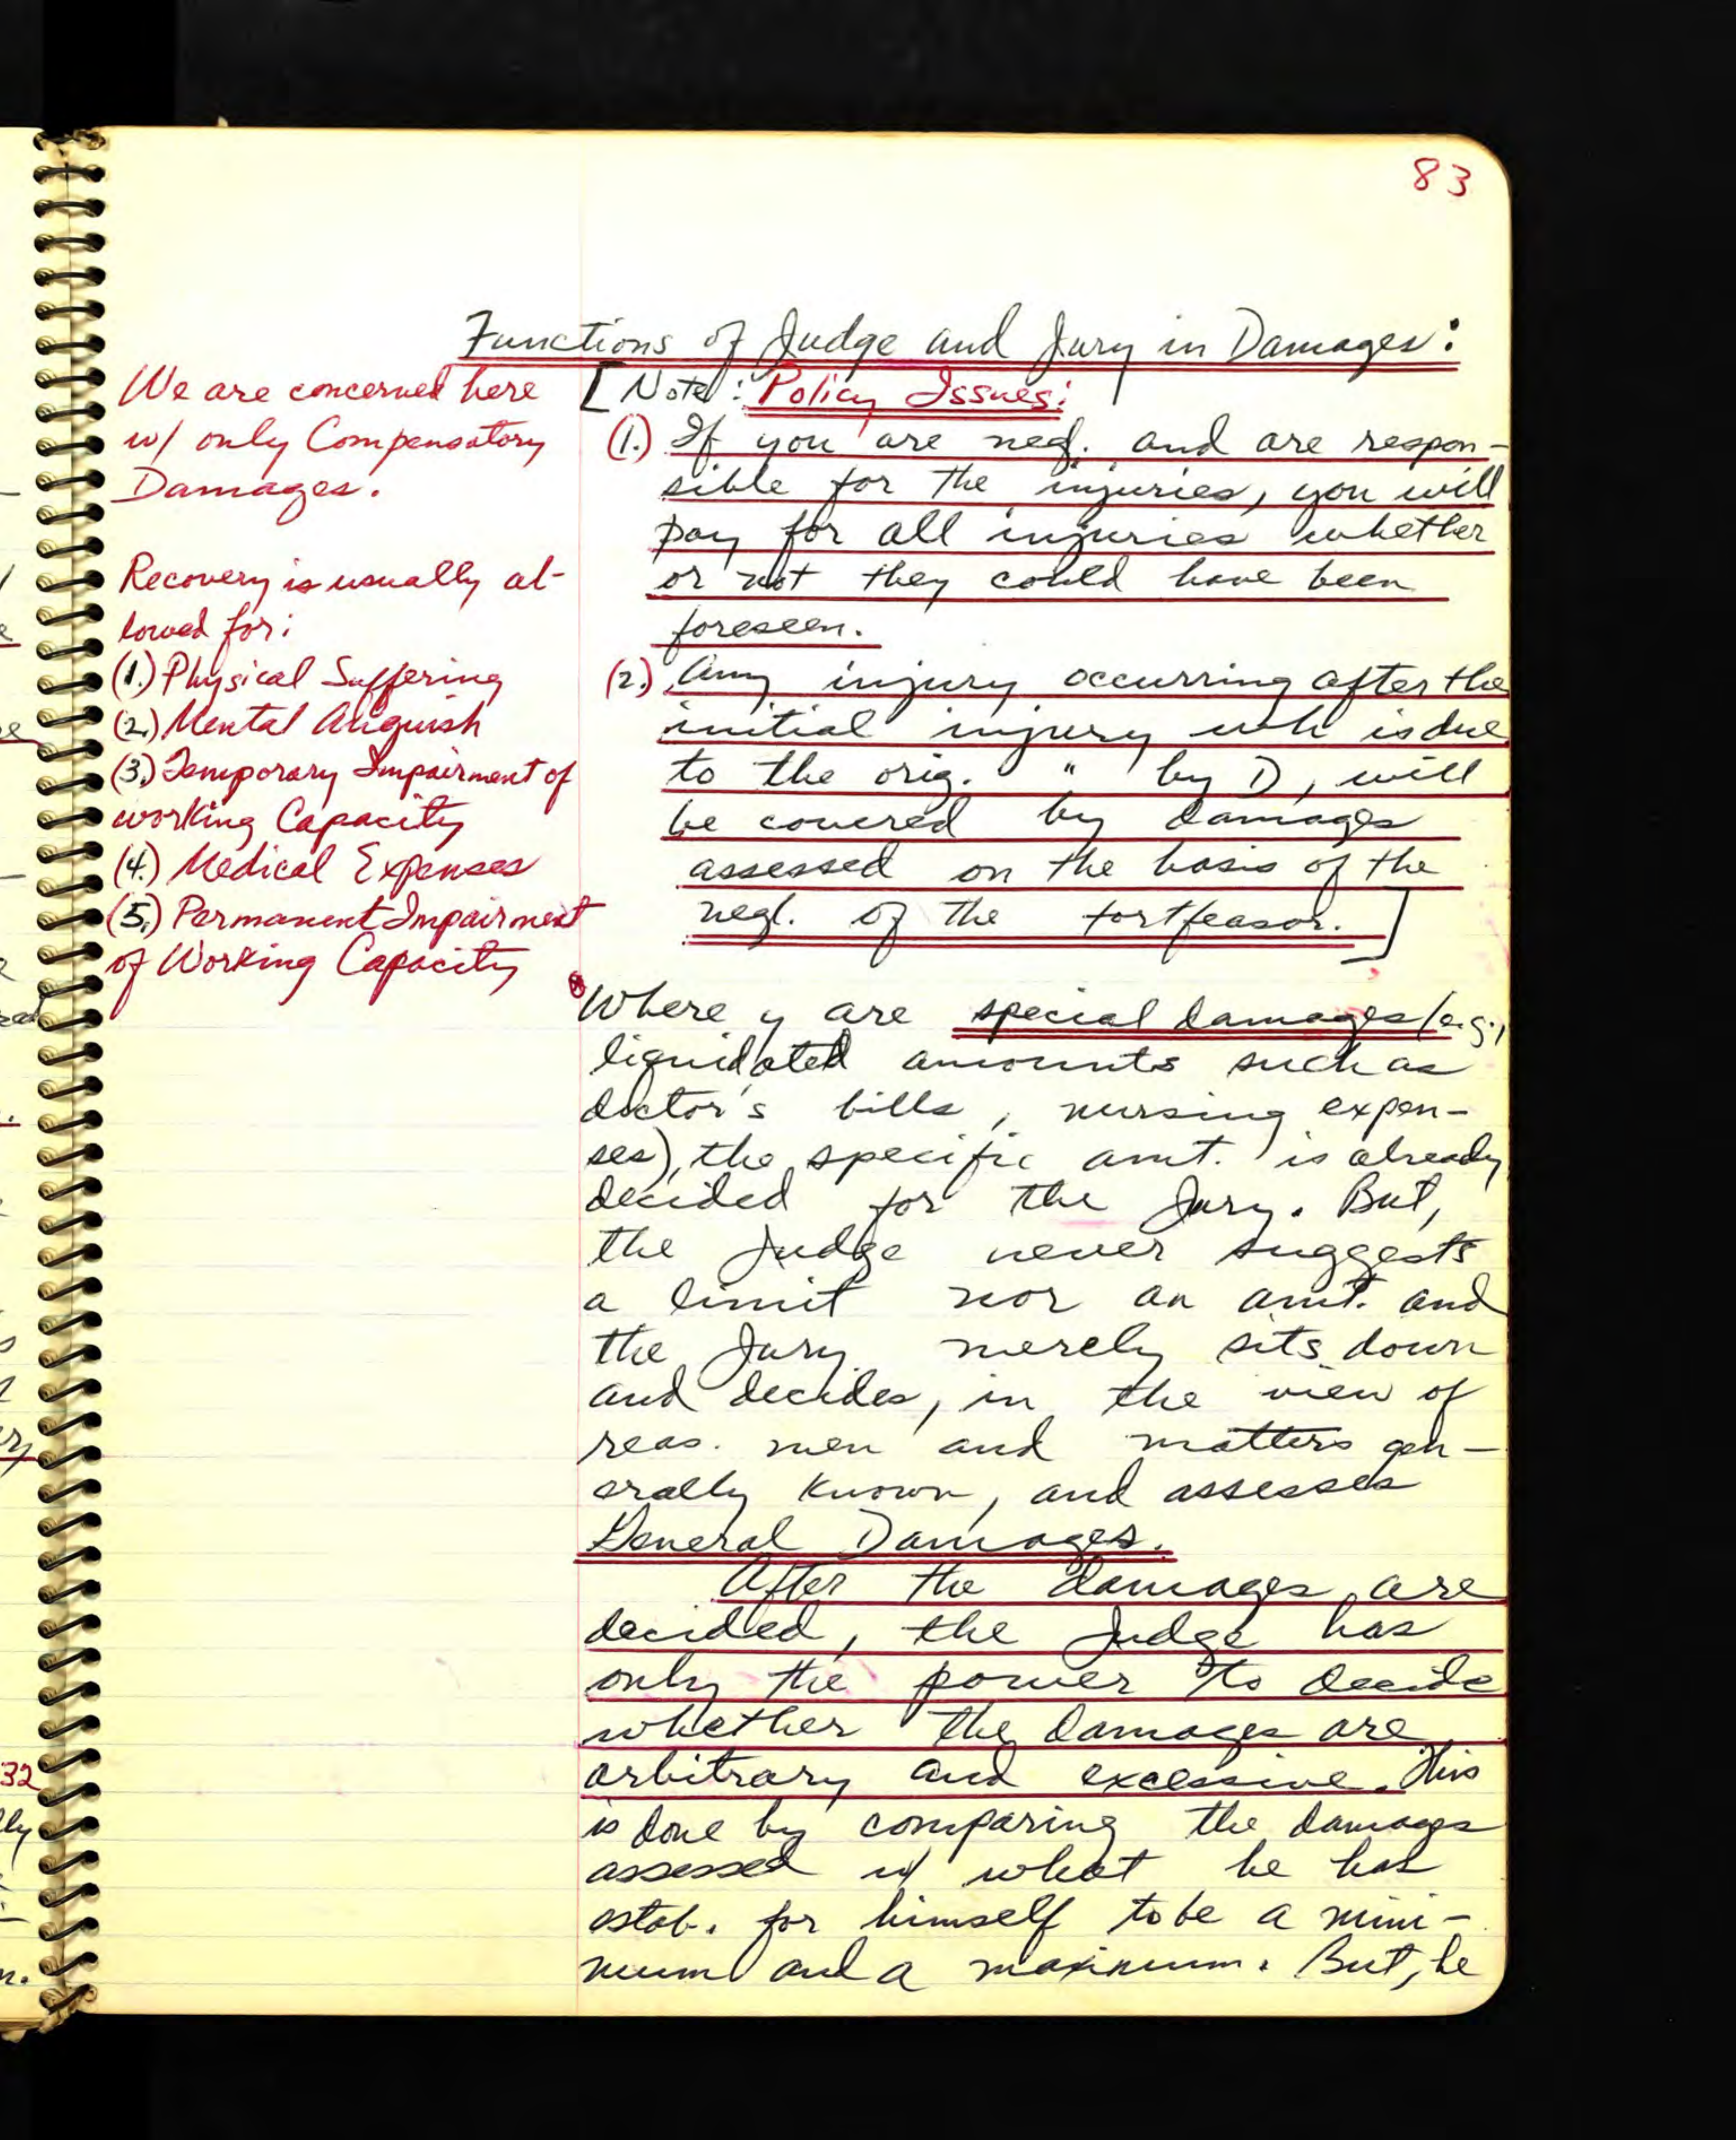 83
Functions of Judge and Jury in Damages:
We are concerned here
w/ only Compensatory
Damages.
Recovery is usually al-
lowed for:
(1.) Physical Suffering
(2.) Mental Anguish
(3.) Temporary Impairment of
working Capacity
(4.) Medical Expenses
(5.) Permanent Impairment
of Working Capacity
[Note: Policy Issues:
(1.) If you are neg. and are respon-
sible for the injuries, you will
pay for all injuries whether
or not they could have been
foreseen.
(2.) Any injury occurring after the
initial injury wh is due
to the orig. " by D, will
be covered by damages
assessed on the basis of the
negl. of the tortfeasor.]
Where y are special damages (e.g.,
liquidated amounts such as
doctor's bills, nursing expen-
ses), the specific amt. is already
decided for the Jury. But,
the Judge never suggests
a limit nor an amt. and
the Jury merely sits down
and decides, in the view of
reas. men and matters gen-
erally known, and assesses
General Damages.
After the damages are
decided, the Judge has
only the power to decide
whether the damages are
arbitrary and excessive. This
is done by comparing the damages
assessed w/ what he has
estab. for himself to be a mini-
mum and a maximum. But, he
32